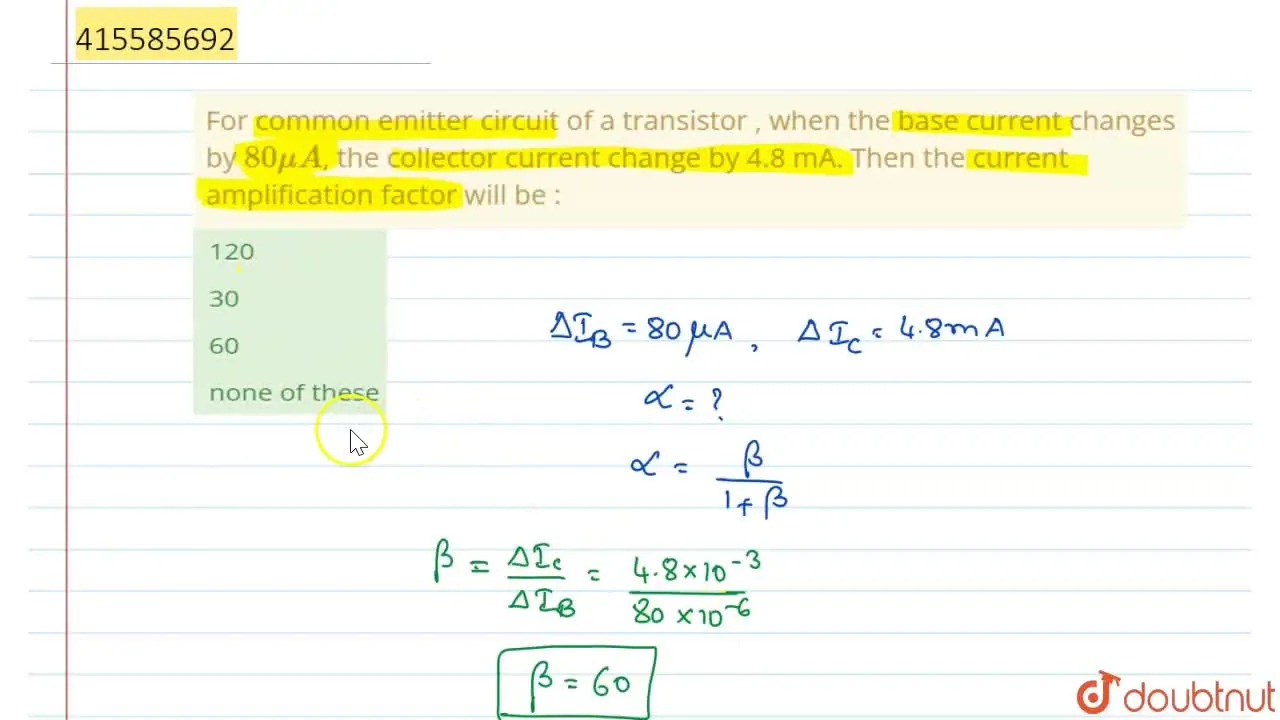 415585692
For common emitter circuit of a transistor , when the base current changes
by 80μA, the collector current change by 4.8 mA. Then the current
amplification factor will be :
120
30
60
none of these
ΔI_B = 80 μA , ΔI_C = 4.8 m A
α = ?
α = β / 1 + β
β = ΔI_C / ΔI_B = 4.8 × 10⁻³ / 80 × 10⁻⁶
β = 60
doubtnut